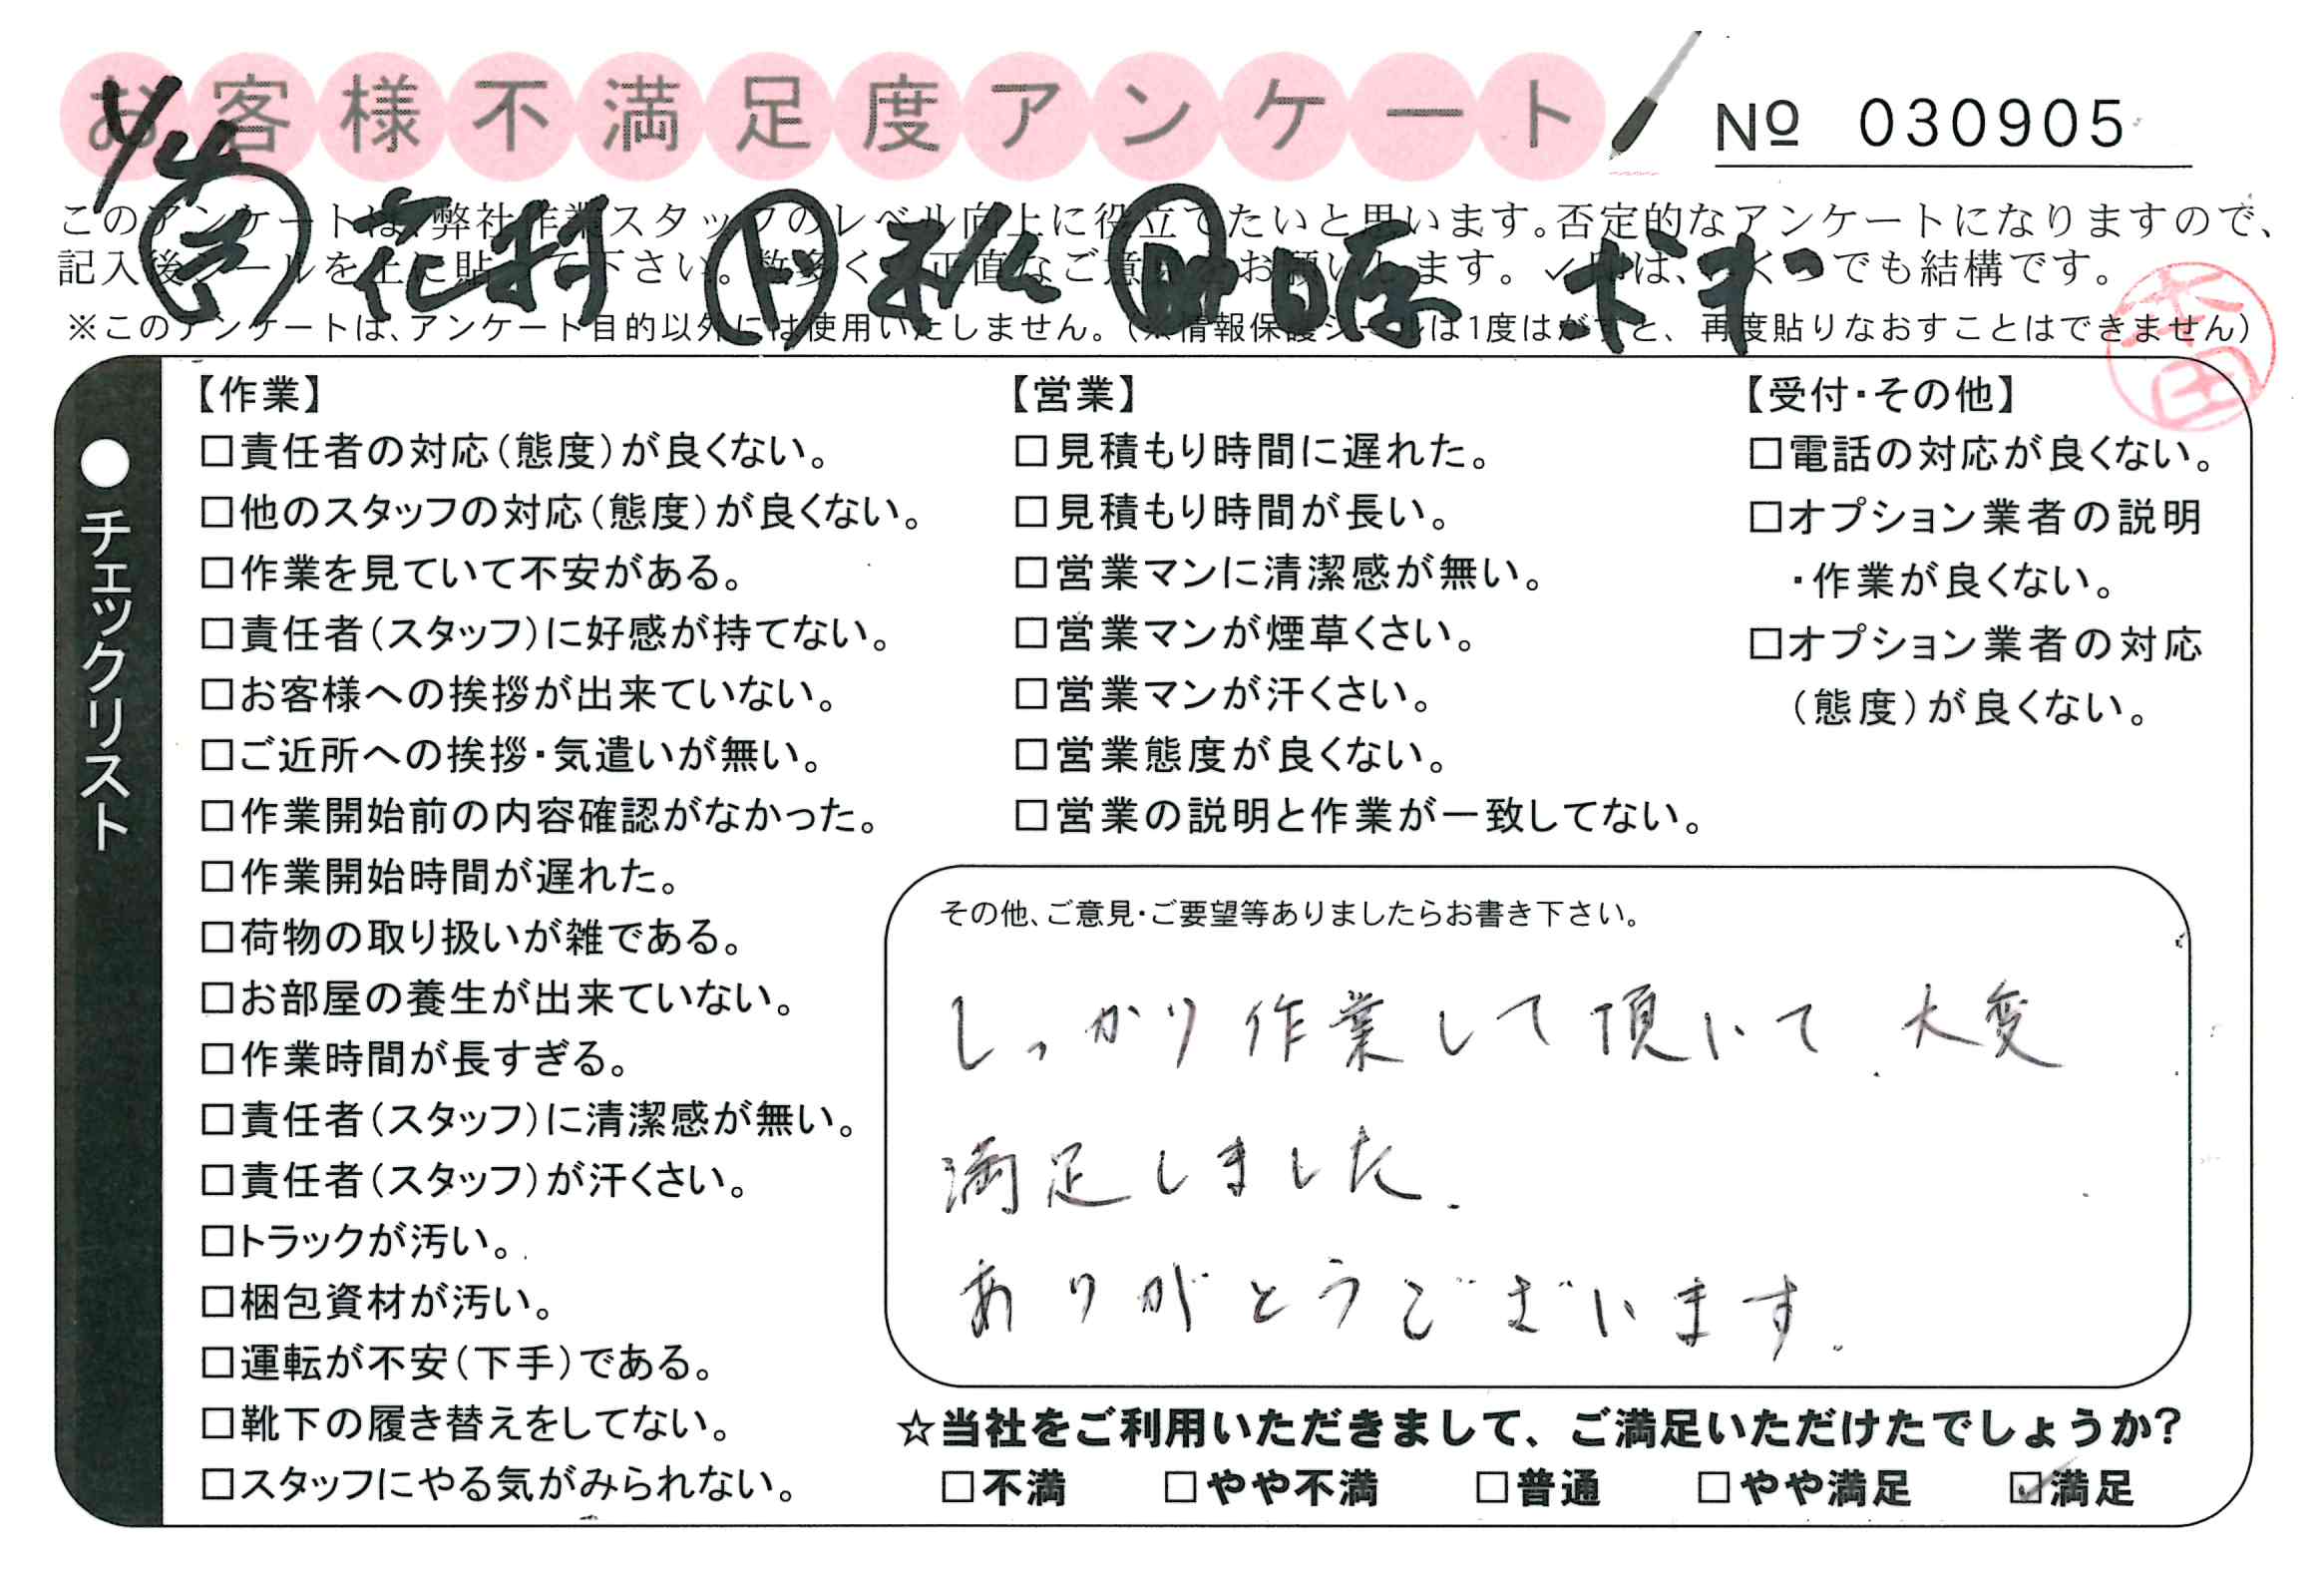 お客様不満足度アンケート
No 030905
このアンケートは、弊社作業スタッフのレベル向上に役立てたいと思います。否定的なアンケートになりますので、
記入後シールを上に貼って下さい。数多くの正直なご意見をお願いします。✓印は、いくつでも結構です。
※このアンケートは、アンケート目的以外には使用いたしません。(※情報保護シールは1度はがすと、再度貼りなおすことはできません)
本田
●チェックリスト
【作業】
□責任者の対応(態度)が良くない。
□他のスタッフの対応(態度)が良くない。
□作業を見ていて不安がある。
□責任者(スタッフ)に好感が持てない。
□お客様への挨拶が出来ていない。
□ご近所への挨拶・気遣いが無い。
□作業開始前の内容確認がなかった。
□作業開始時間が遅れた。
□荷物の取り扱いが雑である。
□お部屋の養生が出来ていない。
□作業時間が長すぎる。
□責任者(スタッフ)に清潔感が無い。
□責任者(スタッフ)が汗くさい。
□トラックが汚い。
□梱包資材が汚い。
□運転が不安(下手)である。
□靴下の履き替えをしてない。
□スタッフにやる気がみられない。
【営業】
□見積もり時間に遅れた。
□見積もり時間が長い。
□営業マンに清潔感が無い。
□営業マンが煙草くさい。
□営業マンが汗くさい。
□営業態度が良くない。
□営業の説明と作業が一致してない。
【受付・その他】
□電話の対応が良くない。
□オプション業者の説明
・作業が良くない。
□オプション業者の対応
(態度)が良くない。
その他、ご意見・ご要望等ありましたらお書き下さい。
しっかり作業して頂いて、大変
満足しました。
ありがとうございます。
☆当社をご利用いただきまして、ご満足いただけたでしょうか?
□不満 □やや不満 □普通 □やや満足 ☑満足